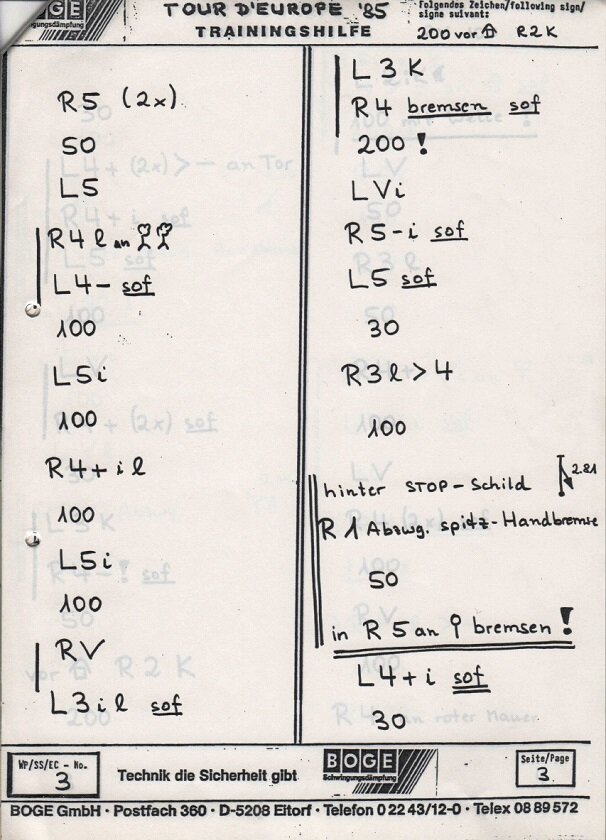 BOGE
Schwingungsdämpfung
TOUR D'EUROPE '85
TRAININGSHILFE
folgendes Zeichen/following sign/
signe suivant:
200 vor R2K
R5 (2x)
50
L5
R4 l an
L4- sof
100
L5i
100
R4+ i l
100
L5i
100
RV
L3 i l sof
L3K
R4 bremsen sof
200!
LVi
R5-i sof
L5 sof
30
R3 l > 4
100
hinter STOP-Schild 2.81
R1 Abzwg. spitz-Handbremse
50
in R5 an bremsen!
L4+i sof
30
WP/SS/EC - No.
3
Technik die Sicherheit gibt
BOGE
Schwingungsdämpfung
Seite/Page
3
BOGE GmbH · Postfach 360 · D-5208 Eitorf · Telefon 0 22 43/12-0 · Telex 08 89 572